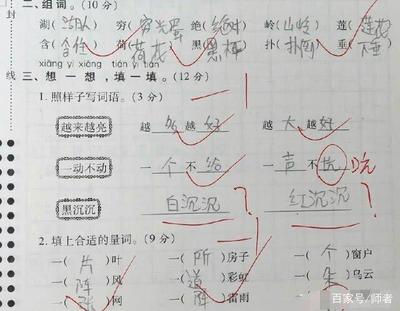 二、组词。(10分)
湖(湖人) 穷(穷光蛋) 绝(绝对) 岭(山岭) 莲(莲花)
含(含住) 荷(荷花) 黑(黑棒) 扑(扑倒) 垂(下垂)
xiǎng yi xiǎng tián yi tián
三、想一想,填一填。(12分)
1. 照样子写词语。(3分)
越来越亮 越多越好 越大越好
一动不动 一个不给 一声不吭 吭
黑沉沉 白沉沉 ? 红沉沉 ?
2. 填上合适的量词。(9分)
一(片)叶 一(所)房子 一(个)窗户
一(阵)风 一(道)彩虹 一(朵)乌云
一(张)网 一(阵)雷雨
封
线
百家号/师者